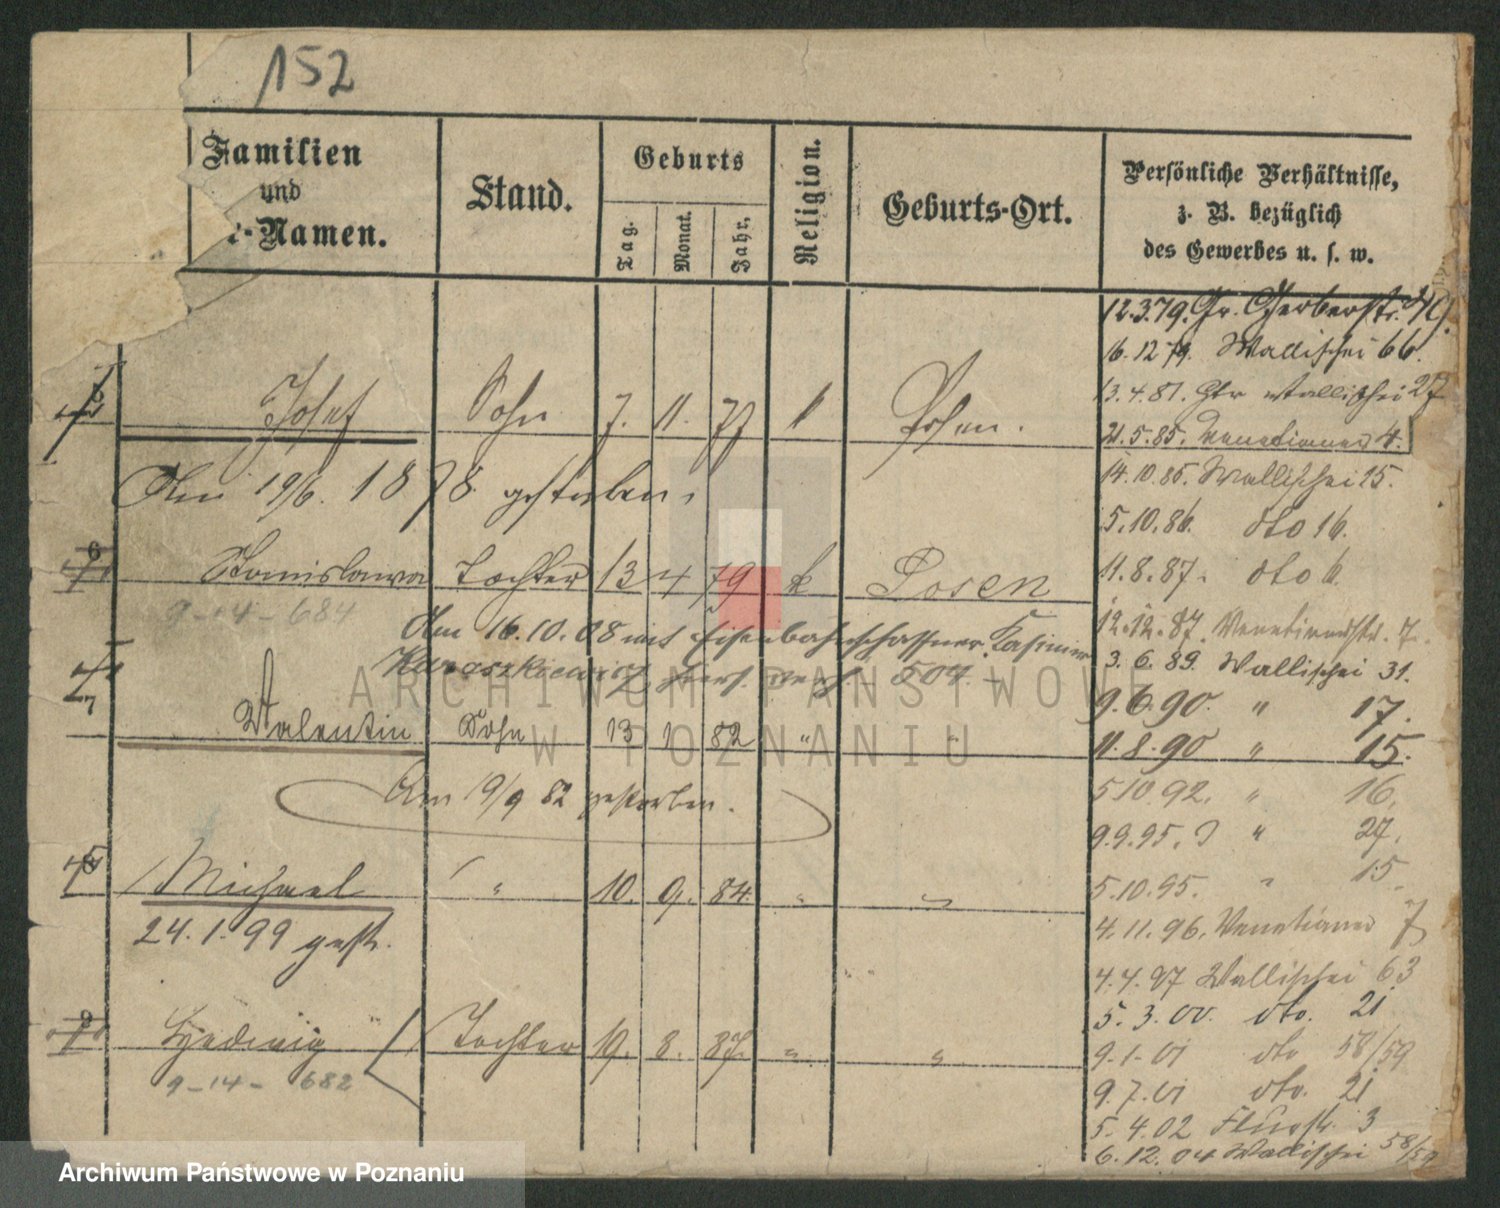 152
Familien
und
-Namen.
Stand.
Geburts
Tag.
Monat.
Jahr.
Religion.
Geburts-Ort.
Persönliche Verhältnisse,
z. B. bezüglich
des Gewerbes u. s. w.
12.3.79. Gr. Gerberstr.
16.12.79. Wallischei 66.
13.4.81. Wallischei 27
21.5.85. Venetianer 4.
14.10.85. Wallischei 25.
5.10.86. dto 16.
11.8.87. dto 6.
12.12.87. Venetianerstr. 7.
3.6.89. Wallischei 31.
9.6.90. " 17.
11.8.90 " 15.
5.10.92. " 16.
9.9.95. " 27.
5.10.95. " 15.
4.11.96. Venetianer 7
4.4.97 Wallischei 63
5.3.00. dto. 21
9.1.01 dto 58/59
9.7.01 dto. 21
5.4.02 Flurstr. 3
6.12.04 Wallischei 58/59
5 Josef Sohn 7. 11. 77 k Posen.
Am 19/6. 1878 gestorben.
6 Stanislawa Tochter 13 4 79 k Posen
9-14-684
Am 16.10.08 mit Eisenbahnschaffner Kasimir
Karaszkiewicz hier verh. 504.
7 Valentin Sohn 13 1 82 " "
Am 19/9 82 gestorben.
8 Michael " 10. 9. 84 " "
24.1.99 gest.
9 Hedwig Tochter 19. 8. 87. " "
9-14-682
ARCHIWUM PAŃSTWOWE
W POZNANIU
Archiwum Państwowe w Poznaniu